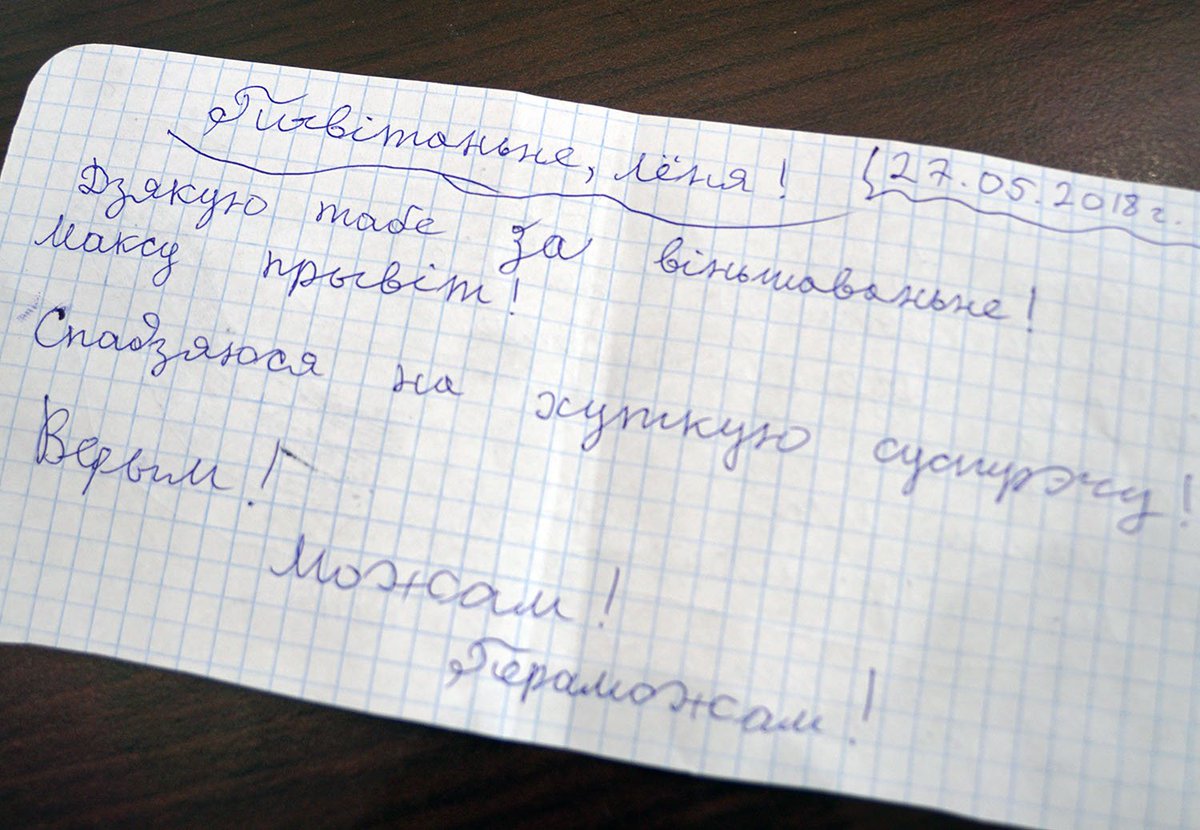 Прывітаньне, Лёня! 27.05.2018г.
Дзякую табе за віншаваньне!
Максу прывіт!
Спадзяюся на хуткую сустрэчу!
Верым!
Можам!
Пераможам!